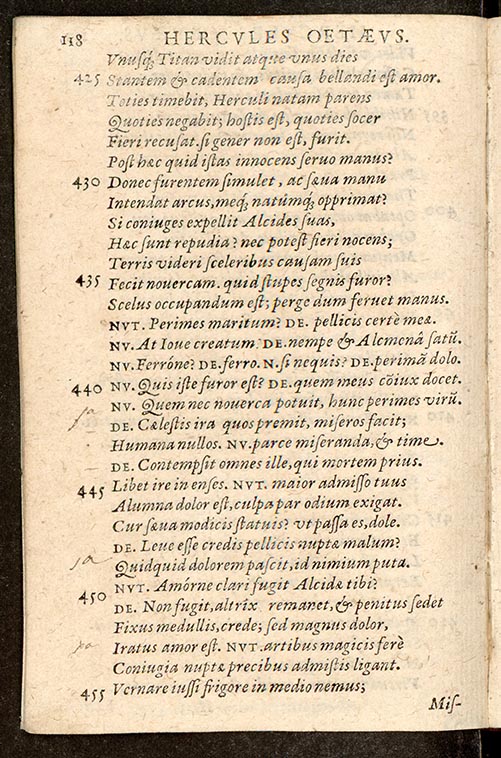 118 HERCVLES OETÆVS.
Vnusq́; Titan vidit atque vnus dies
425 Stantem & cadentem causa bellandi est amor.
Toties timebit, Herculi natam parens
Quoties negabit; hostis est, quoties socer
Fieri recusat. si gener non est, furit.
Post hæc quid istas innocens seruo manus?
430 Donec furentem simulet, ac sæua manu
Intendat arcus, meq́; natúmq́; opprimat?
Si coniuges expellit Alcides suas,
Hæc sunt repudia? nec potest fieri nocens;
Terris videri sceleribus causam suis
435 Fecit nouercam. quid stupes segnis furor?
Scelus occupandum est; perge dum feruet manus.
NVT. Perimes maritum? DE. pellicis certè meæ.
NV. At Ioue creatum. DE. nempe & Alcmenâ satũ.
NV. Ferróne? DE. ferro. N. si nequis? DE. perimã dolo.
440 NV. Quis iste furor est? DE. quem meus cõiux docet.
NV. Quem nec nouerca potuit, hunc perimes virũ.
DE. Cælestis ira quos premit, miseros facit;
Humana nullos. NV. parce miseranda, & time.
DE. Contempsit omnes ille, qui mortem prius.
445 Libet ire in enses. NVT. maior admisso tuus
Alumna dolor est, culpa par odium exigat.
Cur sæua modicis statuis? vt passa es, dole.
DE. Leue esse credis pellicis nuptæ malum?
Quidquid dolorem pascit, id nimium puta.
450 NVT. Amórne clari fugit Alcidæ tibi?
DE. Non fugit, altrix remanet, & penitus sedet
Fixus medullis, crede; sed magnus dolor,
Iratus amor est. NVT. artibus magicis ferè
Coniugia nuptæ precibus admistis ligant.
455 Vernare iussi frigore in medio nemus;
Mis-